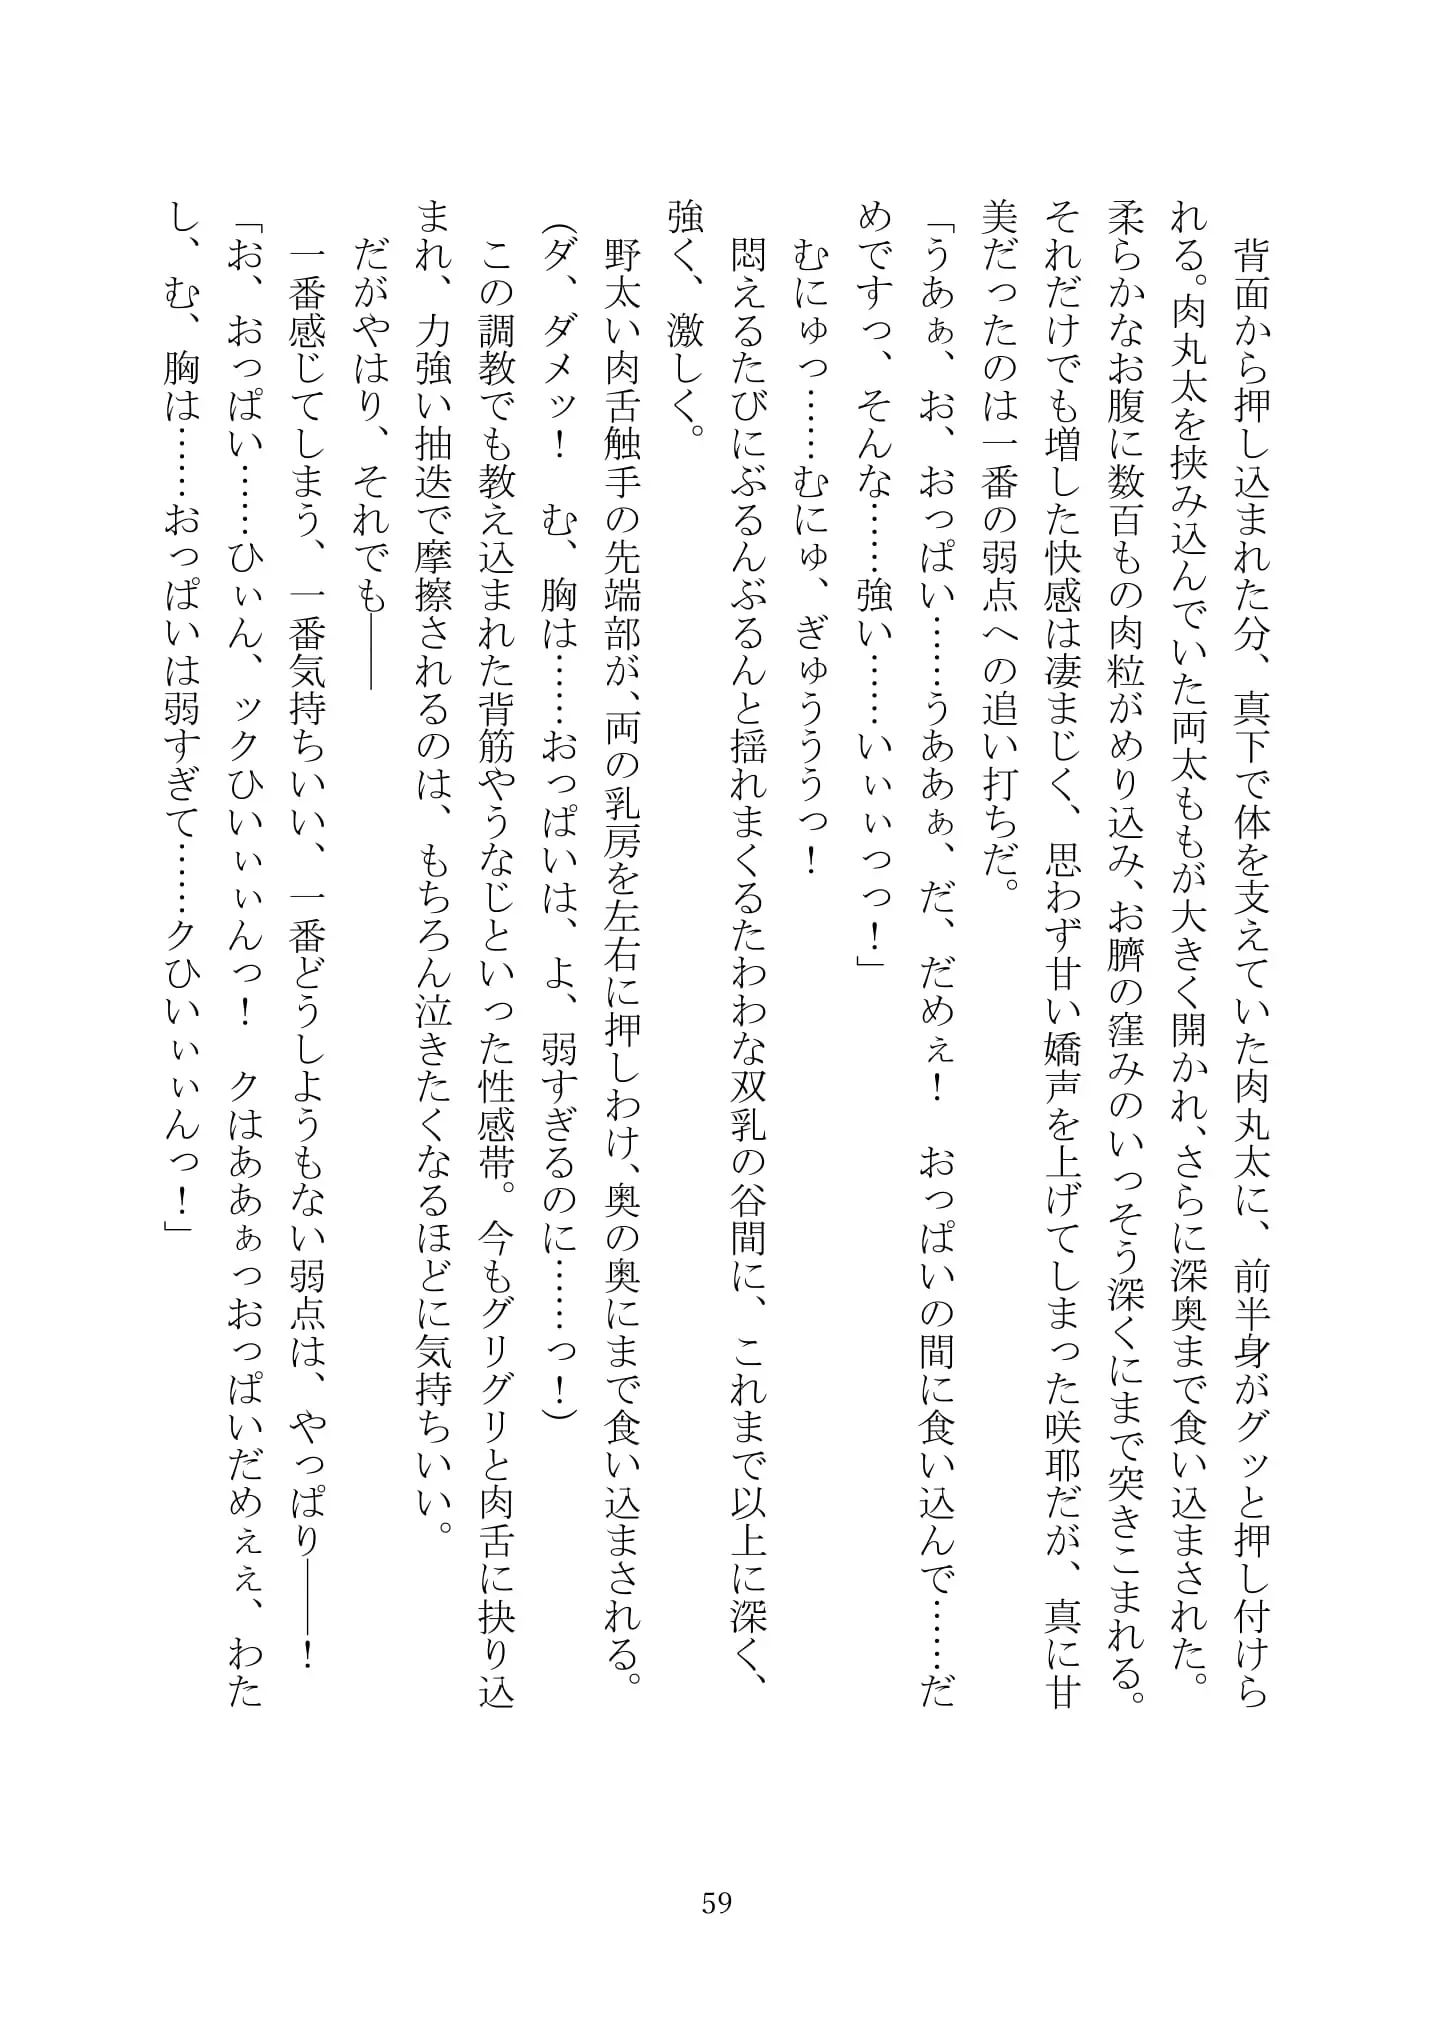 背面から押し込まれた分、真下で体を支えていた肉丸太に、前半身がグッと押し付けら
れる。肉丸太を挟み込んでいた両太ももが大きく開かれ、さらに深奥まで食い込まされた。
柔らかなお腹に数百もの肉粒がめり込み、お臍の窪みのいっそう深くにまで突きこまれる。
それだけでも増した快感は凄まじく、思わず甘い嬌声を上げてしまった咲耶だが、真に甘
美だったのは一番の弱点への追い打ちだ。
「うあぁ、お、おっぱい……うああぁ、だ、だめぇ！　おっぱいの間に食い込んで……だ
めですっ、そんな……強い……いぃぃっっ！」
むにゅっ……むにゅ、ぎゅうううっ！
悶えるたびにぶるんぶるんと揺れまくるたわわな双乳の谷間に、これまで以上に深く、
強く、激しく。
野太い肉舌触手の先端部が、両の乳房を左右に押しわけ、奥の奥にまで食い込まされる。
（ダ、ダメッ！　む、胸は……おっぱいは、よ、弱すぎるのに……っ！）
この調教でも教え込まれた背筋やうなじといった性感帯。今もグリグリと肉舌に抉り込
まれ、力強い抽迭で摩擦されるのは、もちろん泣きたくなるほどに気持ちいい。
だがやはり、それでも――
一番感じてしまう、一番気持ちいい、一番どうしようもない弱点は、やっぱり――！
「お、おっぱい……ひぃん、ックひいぃぃんっ！　クはああぁっおっぱいだめぇぇ、わた
し、む、胸は……おっぱいは弱すぎて……クひいぃぃんっ！」
59